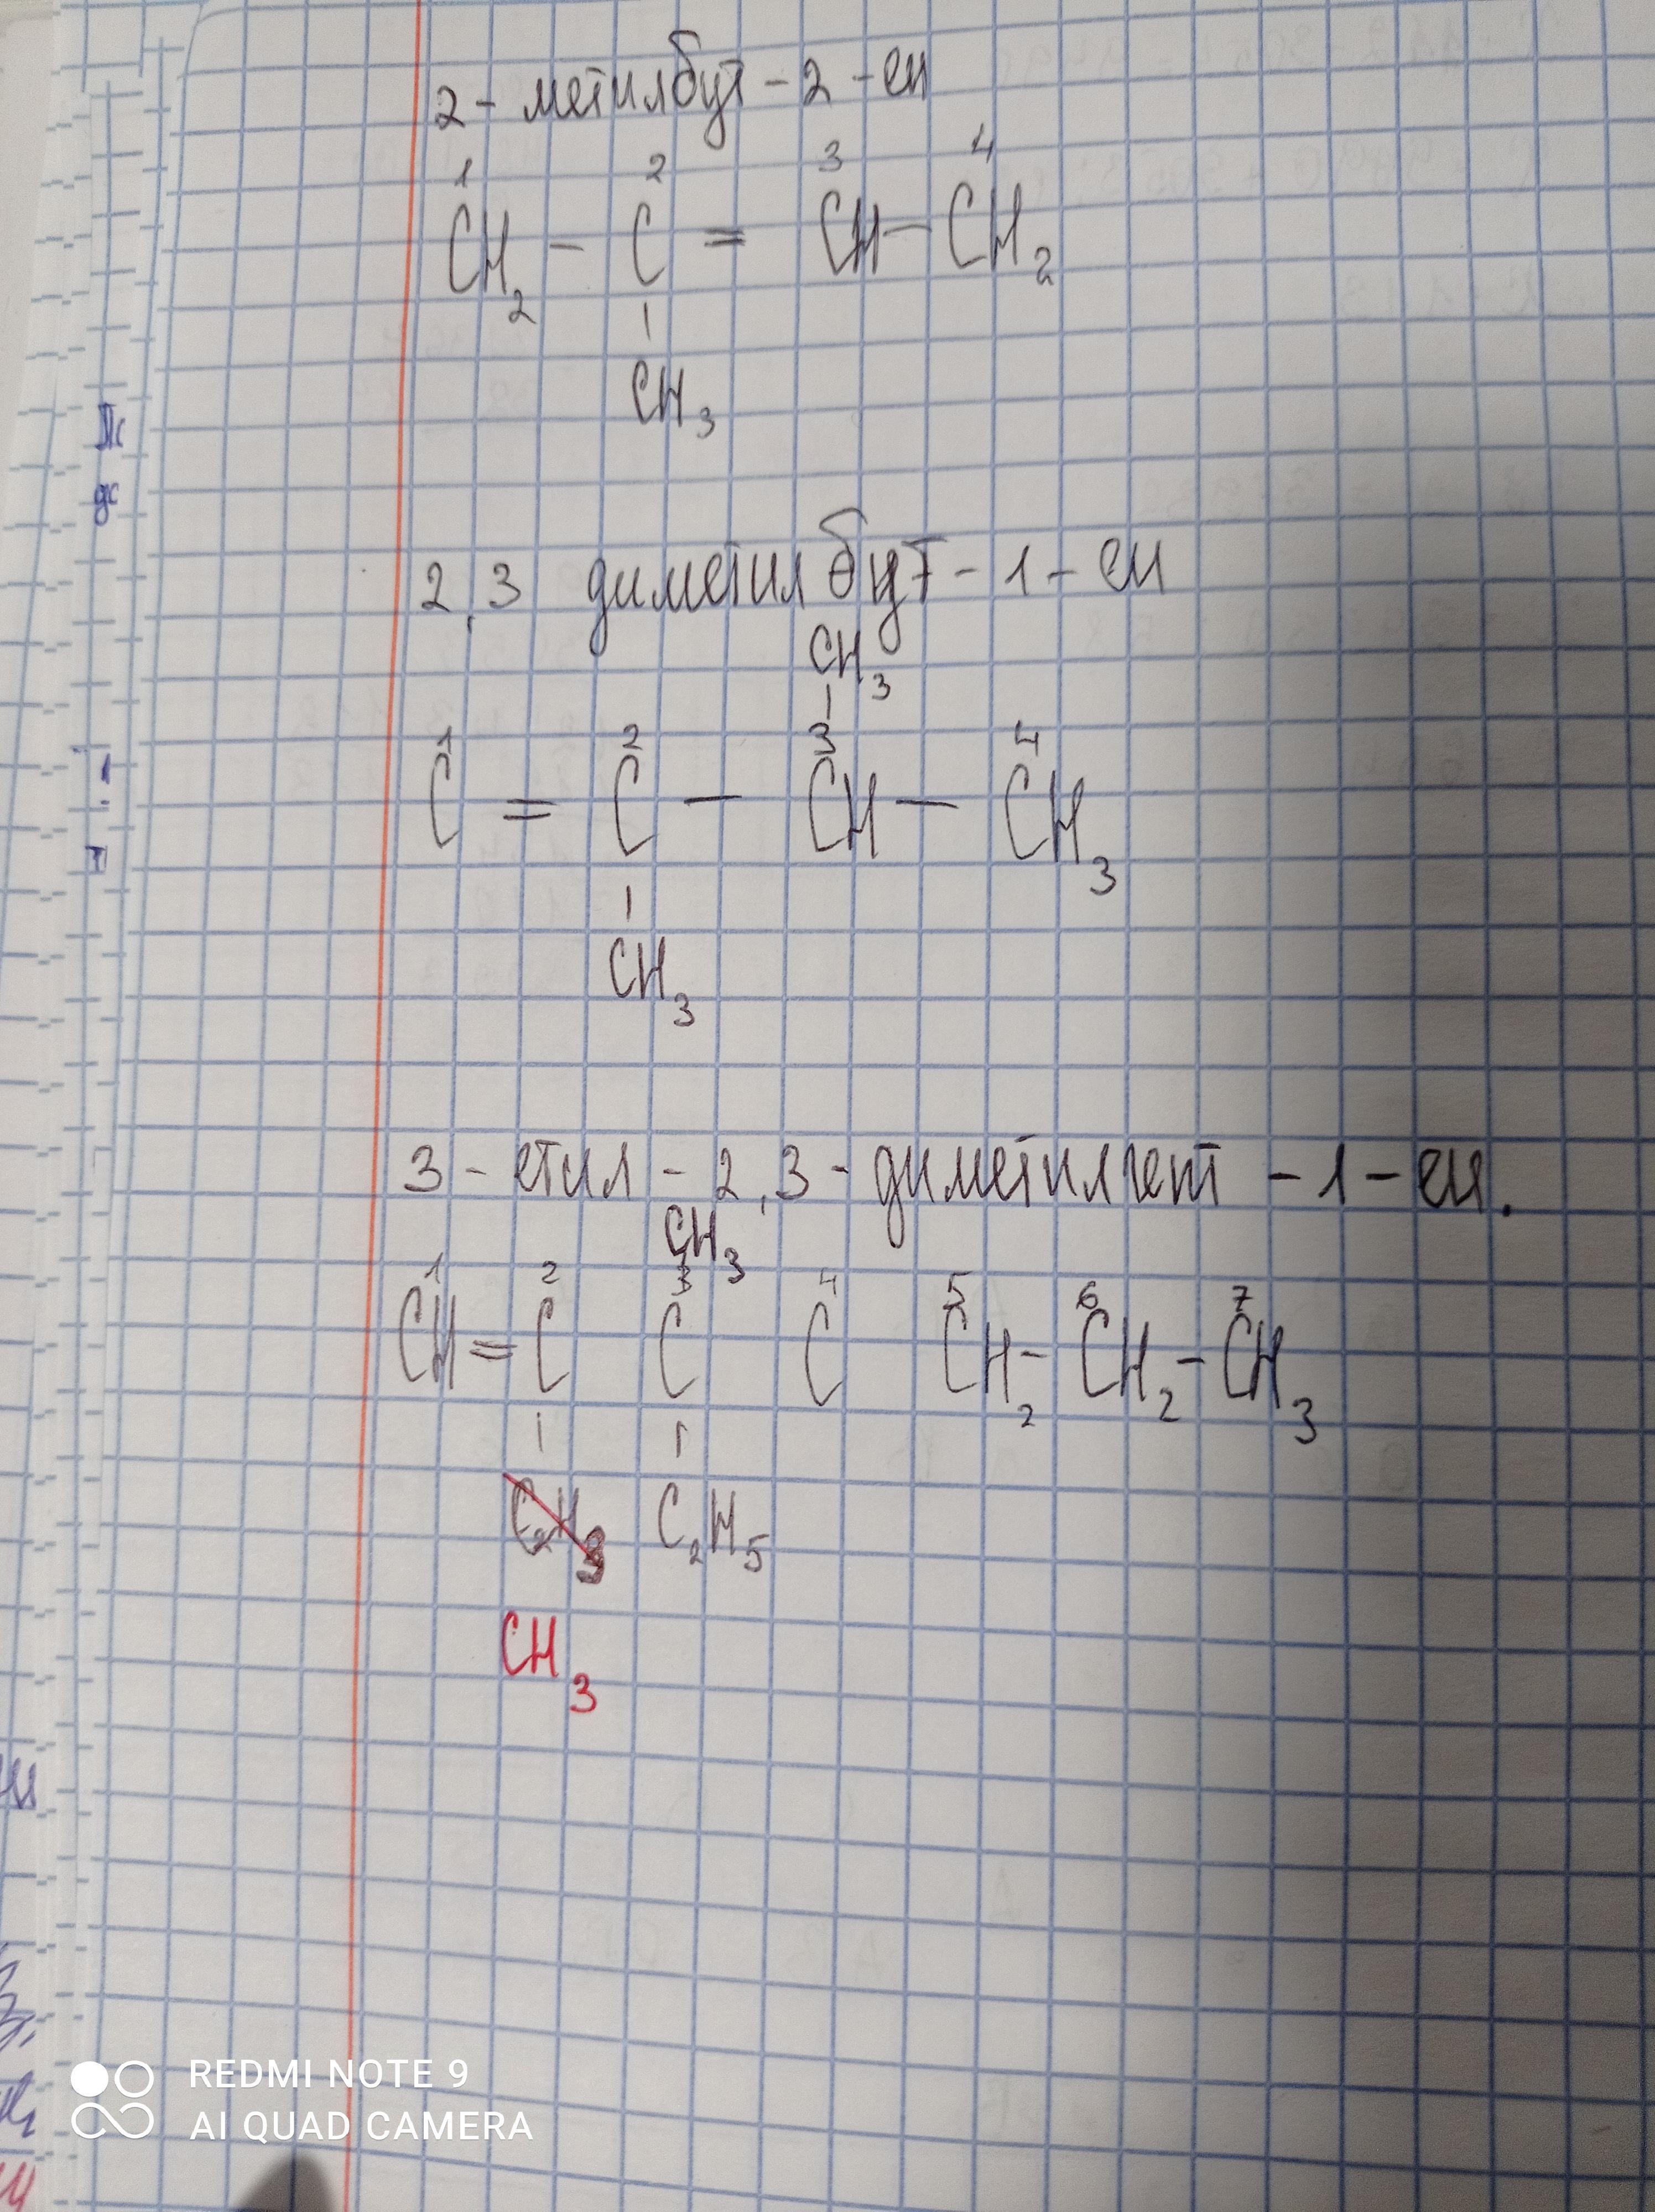 2 - метилбут - 2 - ен
1 2 3 4
CH2 - C = CH - CH2
CH3
2,3 диметил бут - 1 - ен
CH3
1 2 3 4
C = C - CH - CH3
CH3
3 - етил - 2,3 - диметилгепт - 1 - ен.
CH3
1 2 3 4 5 6 7
CH = C C C CH2 - CH2 - CH3
C2H5
CH3
REDMI NOTE 9
AI QUAD CAMERA